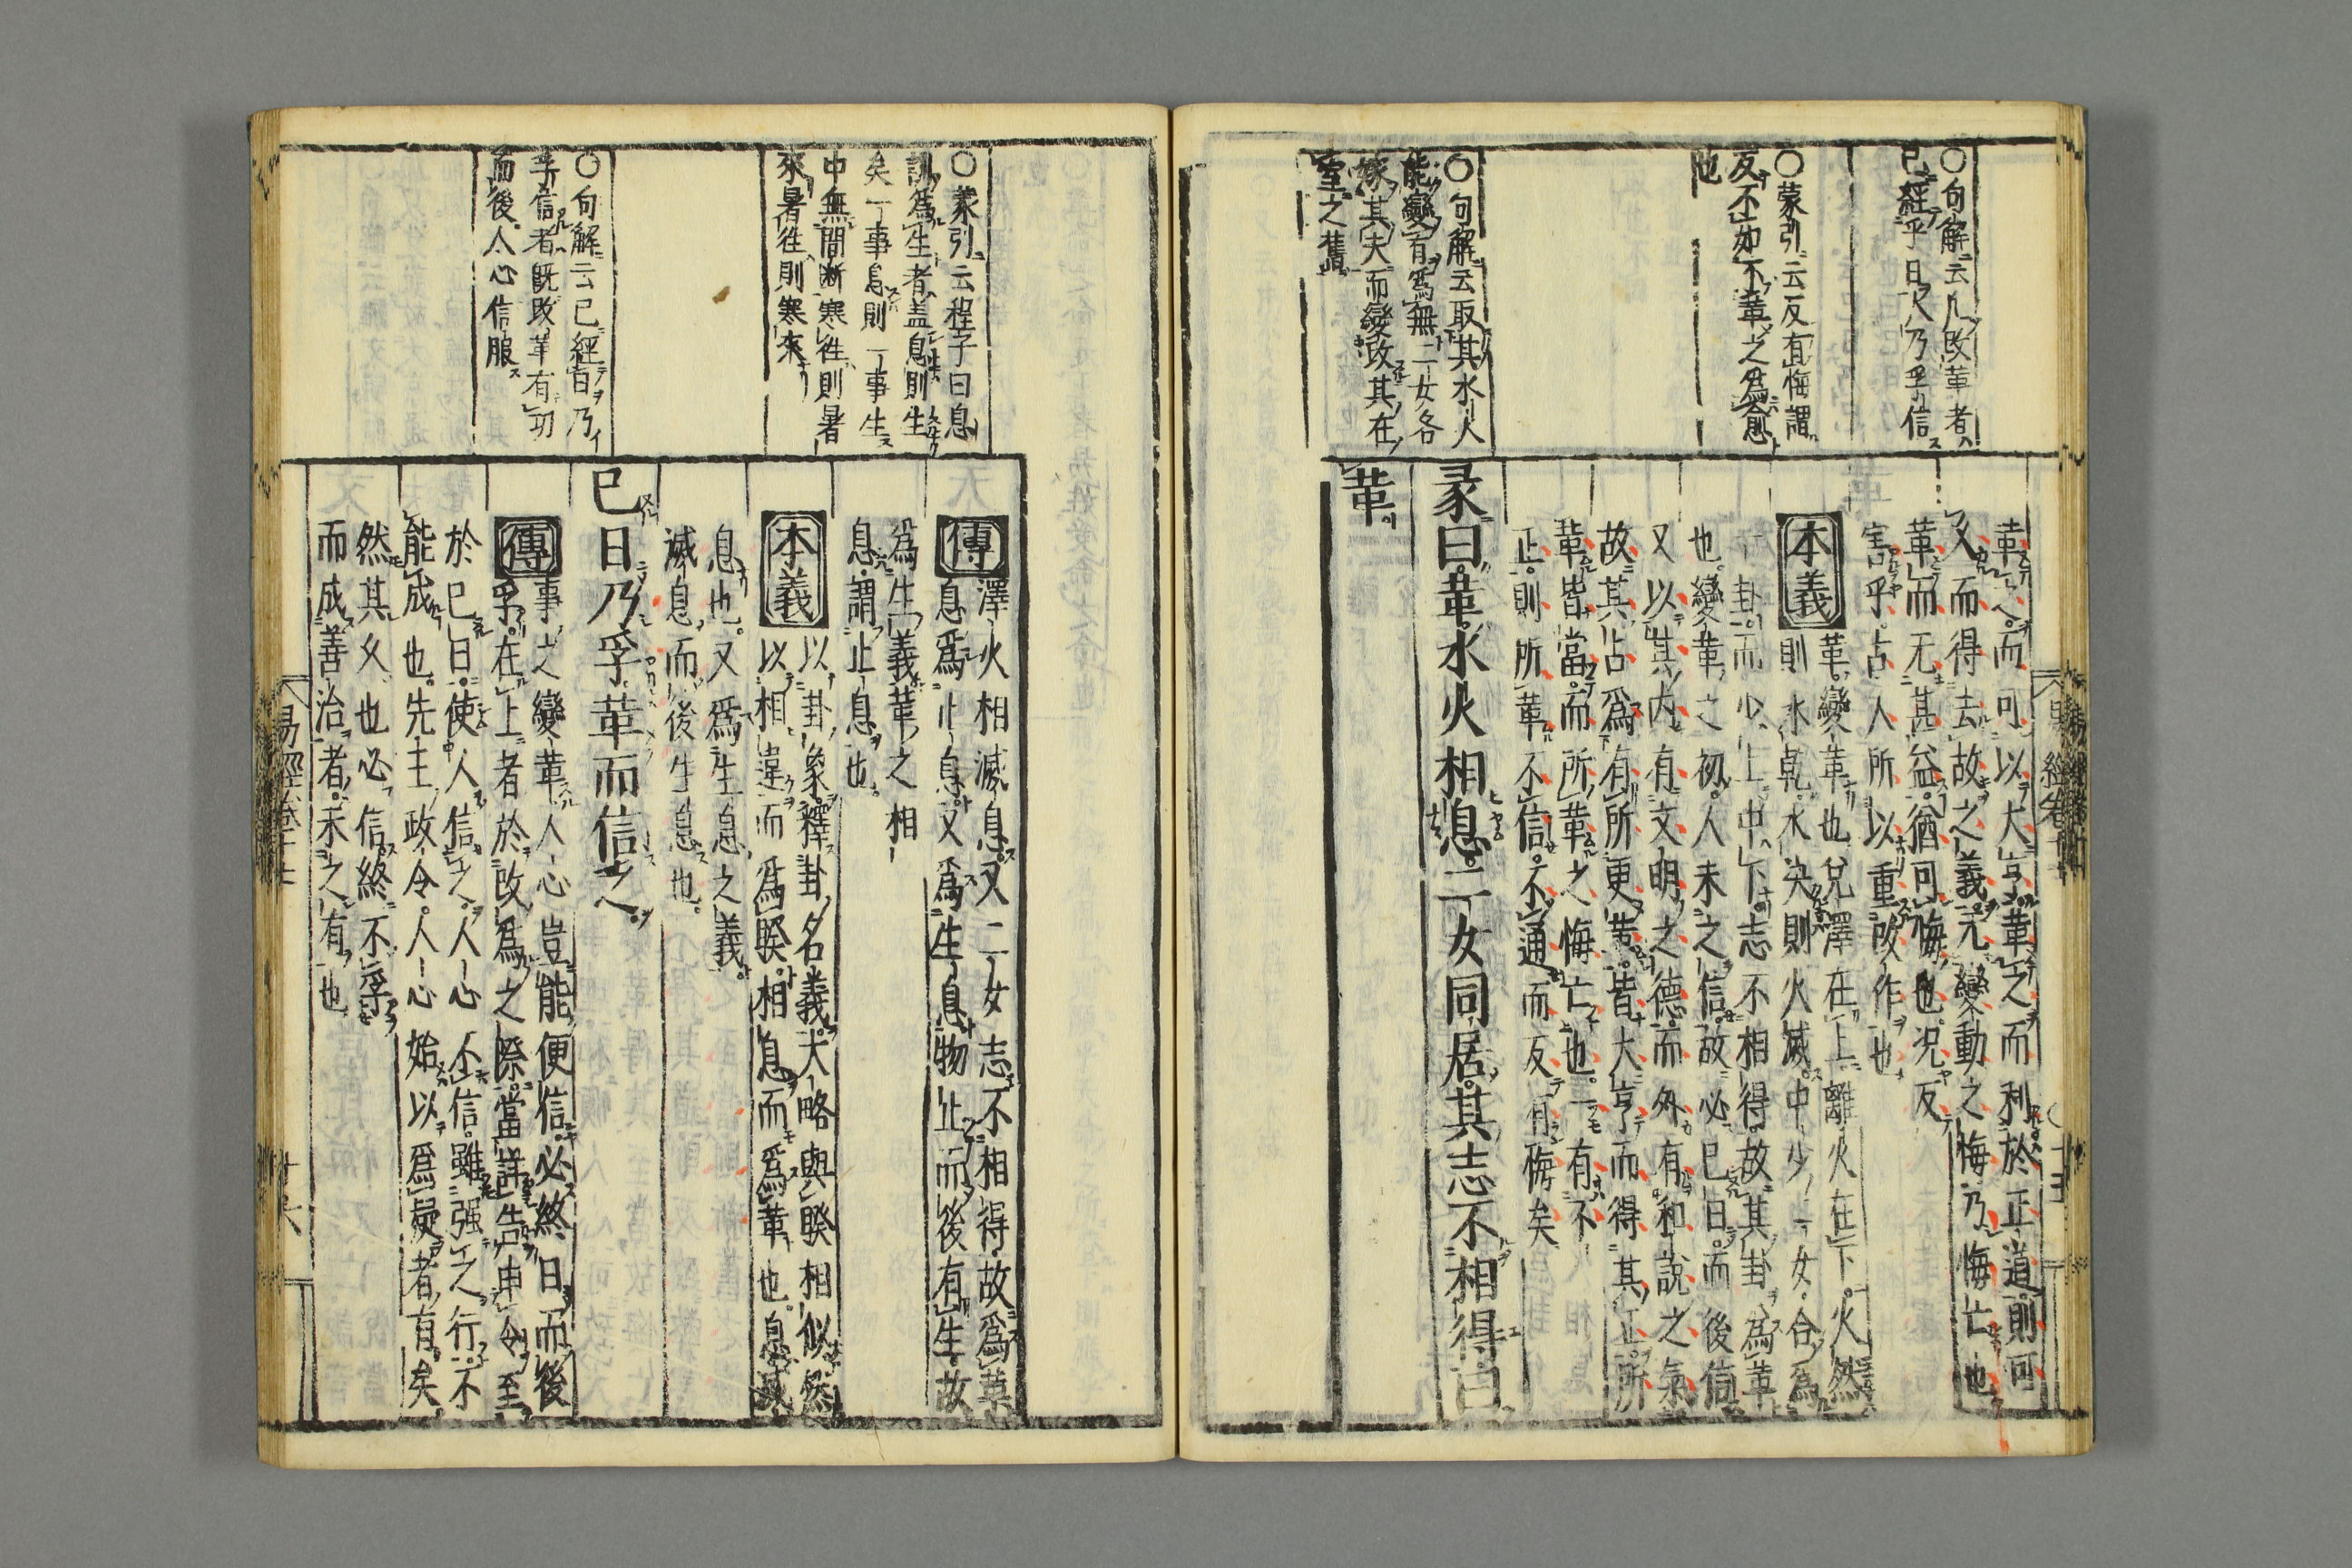 ○句解云凡改革者
已經乎日久乃孚信
○蒙引云反有悔謂
反不如不革之爲愈
也
○句解云取其水火
能變有爲無二女各
嫁其夫而變改其在
室之舊
革之而可以大亨革之而利於正道則可
久而得去故之義无變動之悔乃悔亡也
革而无甚益猶可悔也况反
害乎古人所以重改作也
本義
革變革也兌澤在上離火在下火然
則水乾水决則火滅中少二女合爲
一卦而少上中下志不相得故其卦爲革
也變革之初人未之信故必已日而後信
又以其内有文明之德而外有和說之氣
故其占爲有所更革皆大亨而得其正所
革皆當而所革之悔亡也一有不
正則所革不信不通而反有悔矣
彖曰革水火相息二女同居其志不相得曰
革
易經卷十七
○蒙引云程子曰息
訓爲生者盖息則生
矣一事息則一事生
中無間断寒徃則暑
來暑徃則寒來
○句解云已經百乃
孚信者既改革有功
而後人心信服
傳
澤火相滅息又二女志不相得故爲革
息爲止息又爲生息物止而後有生故
爲生義革之相
息謂止息也
本義
以卦象釋卦名義大略與睽相似然
以相違而爲睽相息而爲革也息滅
息也又爲生息之義
滅息而後生息也
已日乃孚革而信之
傳
事之變革人心豈能便信必終日而後
孚在上者於改爲之際當詳告申令至
於已日使人信之人心不信雖强之行不
能成也先王政令人心始以爲疑者有矣
然其久也必信終不孚
而成善治者未之有也
易經卷十七
十六